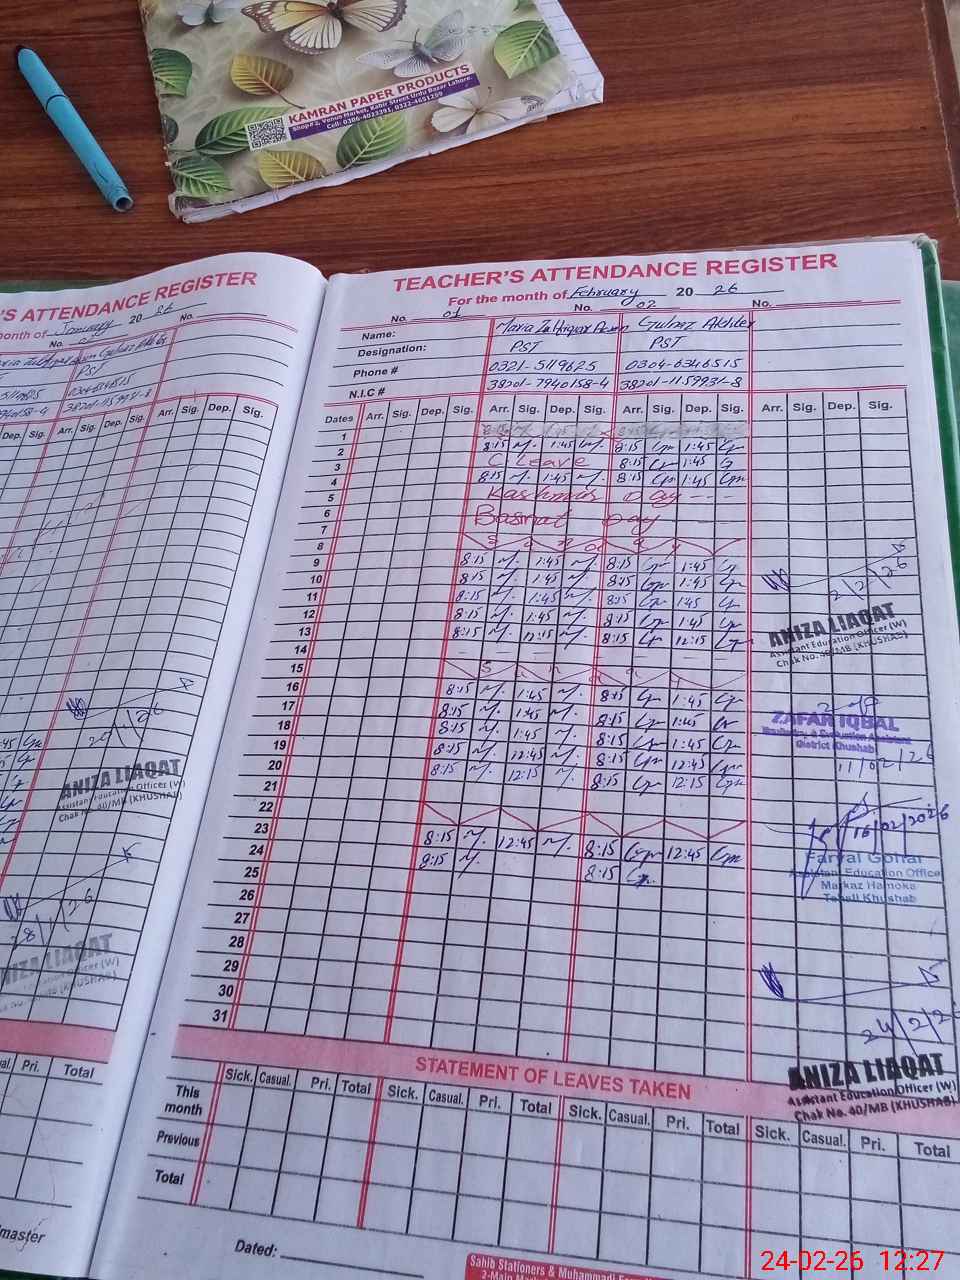 KAMRAN PAPER PRODUCTS
Shop# 2, Venus Market, Kabir Street Urdu Bazar Lahore.
Cell: 0306-4023391, 0322-4651299
'S ATTENDANCE REGISTER
month of January 20 26 No.
Arr. Sig. Dep. Sig.
ANIZA LIAQAT
Assistant Education Officer (W)
Chak No. 40/MB (KHUSHAB)
28/1/26
Pri. Total
TEACHER'S ATTENDANCE REGISTER
For the month of February 20 26
No. 01 No. 02 No.
Name: Gulnaz Akhter
Designation: PST PST
Phone # 0321-5119625 0304-6346515
N.I.C # 38201-7940158-4 38201-1159931-8
Dates Arr. Sig. Dep. Sig. Arr. Sig. Dep. Sig. Arr. Sig. Dep. Sig. Arr. Sig. Dep. Sig.
1
2 8:15 1:45 8:15 1:45
3 C Leave 8:15 1:45
4 8:15 1:45 8:15 1:45
5 Kashmir Day
6 Basant Day
7
8 Sunday
9 8:15 1:45 8:15 1:45
10 8:15 1:45 8:15 1:45
11 8:15 1:45 8:15 1:45
12 8:15 1:45 8:15 1:45
13 8:15 12:15 8:15 12:15
14
15 Sunday
16 8:15 1:45 8:15 1:45
17 8:15 1:45 8:15 1:45
18 8:15 1:45 8:15 1:45
19 8:15 12:45 8:15 12:45
20 8:15 12:15 8:15 12:15
21
22
23 8:15 12:45 8:15 12:45
24 8:15 8:15
25
26
27
28
29
30
31
2/2/26
ANIZA LIAQAT
Assistant Education Officer (W)
Chak No. 40/MB (KHUSHAB)
ZAFAR IQBAL
Monitoring & Evaluation Assistant
District Khushab
11/02/26
16/02/2026
Faryal Gohar
Assistant Education Office
Markaz Hamoka
Tehsil Khushab
24/2/26
ANIZA LIAQAT
Assistant Education Officer (W)
Chak No. 40/MB (KHUSHAB)
STATEMENT OF LEAVES TAKEN
Sick. Casual. Pri. Total Sick. Casual. Pri. Total Sick. Casual. Pri. Total Sick. Casual. Pri. Total
This month
Previous
Total
Dated:
Sahib Stationers & Muhammadi
24-02-26 12:27